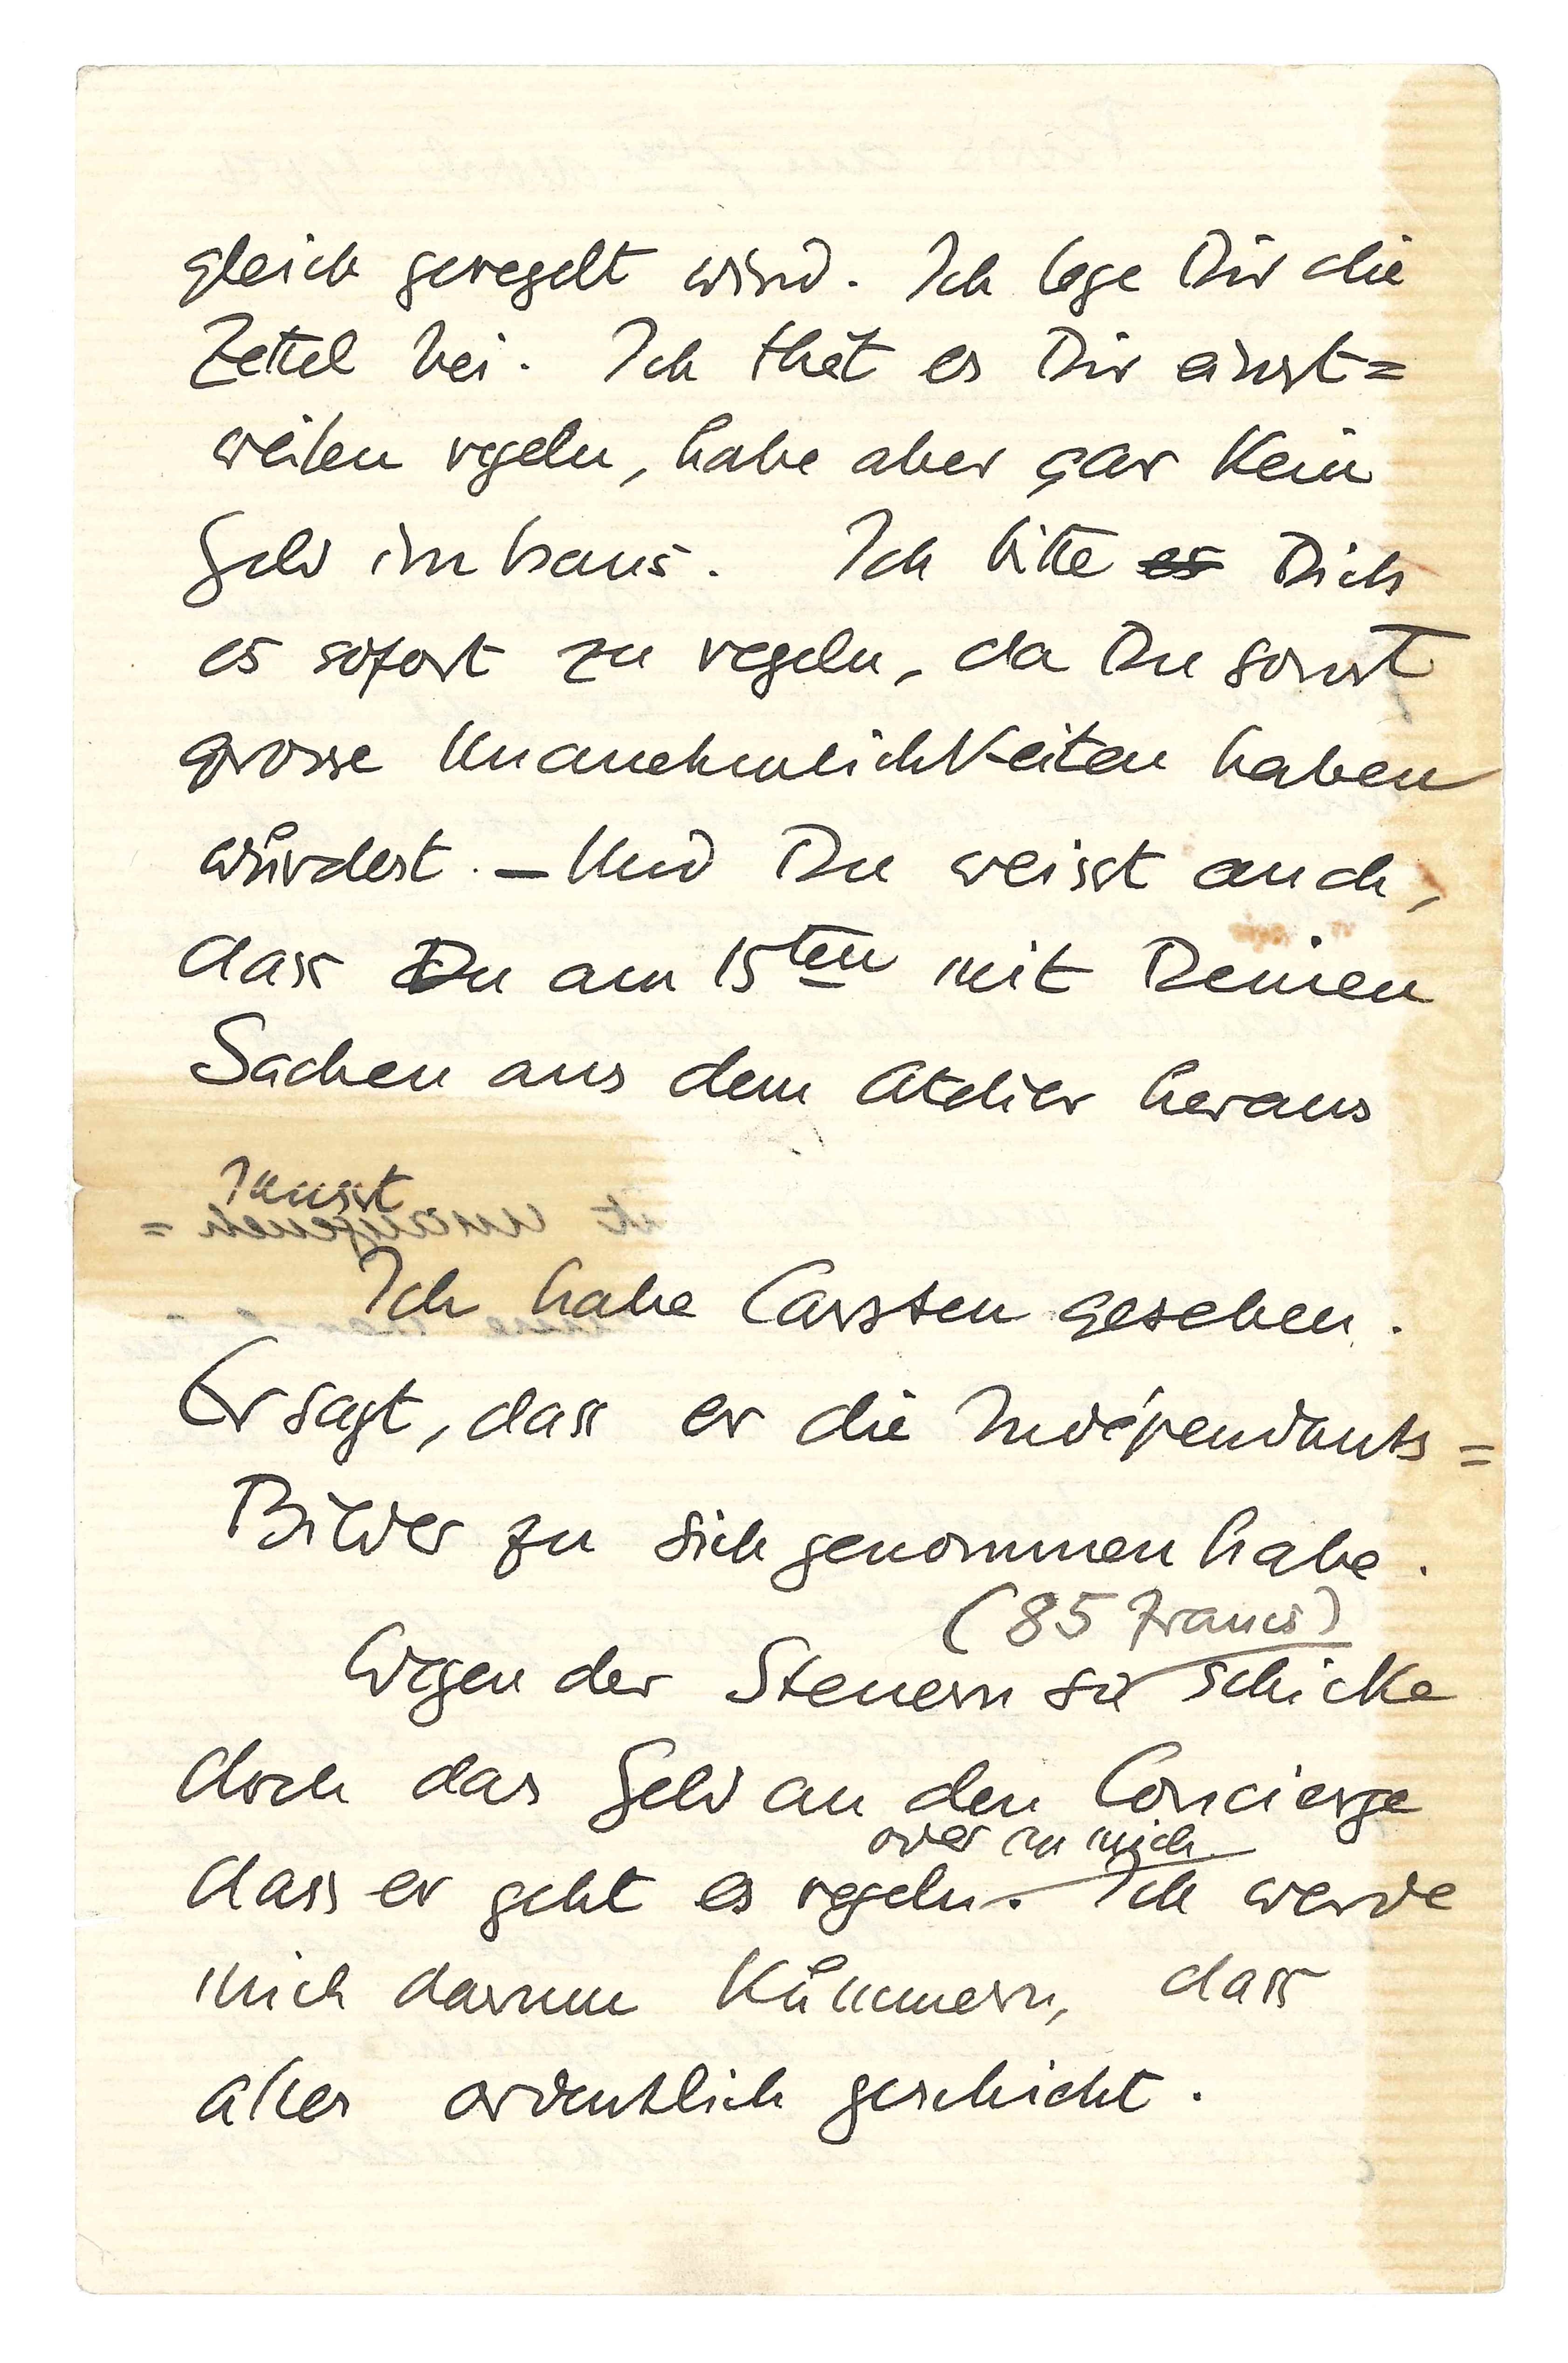 gleich geregelt wird. Ich lege Dir die
Zettel bei. Ich thät es Dir einst=
weilen regeln, habe aber gar kein
Geld im haus. Ich bitte es Dich
es sofort zu regeln, da Du sonst
grosse Unanehmlichkeiten haben
würdest. – Und Du weisst auch,
dass Du am 15ten mit Deinen
Sachen aus dem Atelier heraus
musst
Ich habe Carsten gesehen.
Er sagt, dass er die Indépendants=
Bilder zu sich genommen habe.
(85 Francs)
Wegen der Steuern so schicke
doch das Geld an den Concierge
oder an mich
dass er geht es regeln. Ich werde
mich darum kümmern, dass
alles ordentlich geschieht.